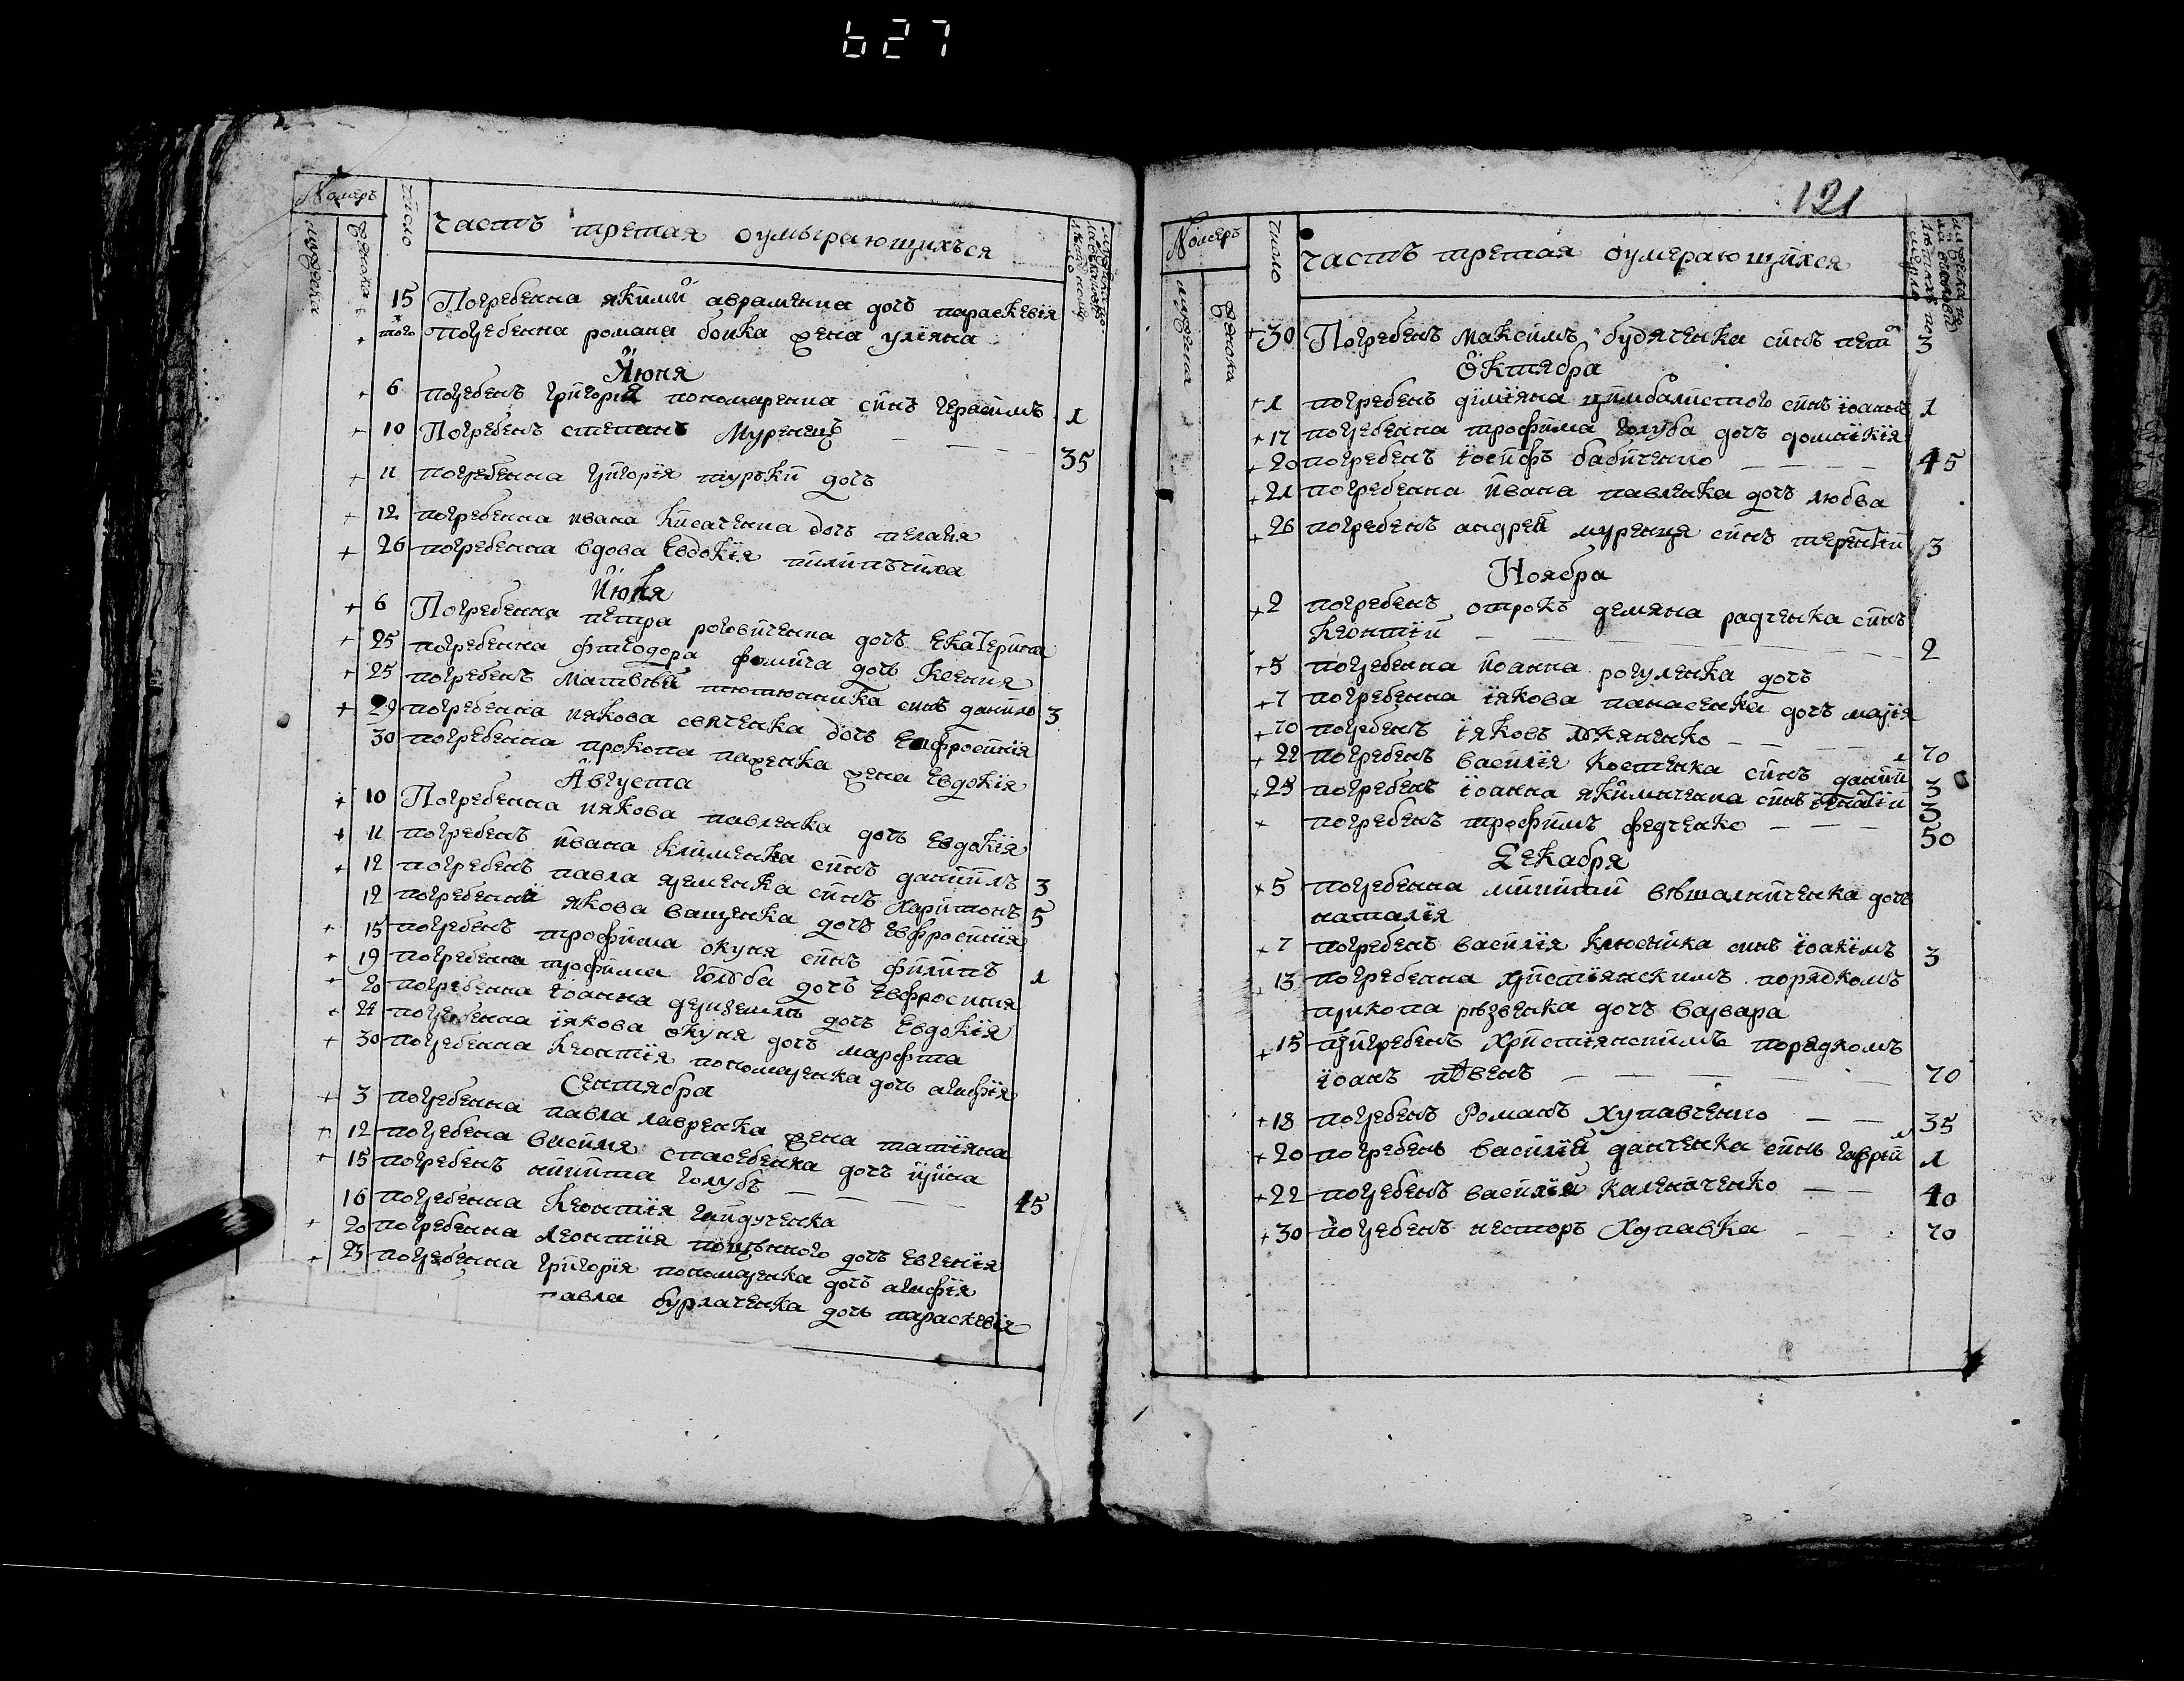 627
Номеръ
число
мужеска
женска
часть третая оумырающихъся
15 Погребенна якима авраменка дочъ параскевїя
того погребенна романа бойка жена улїяна
Июня
6 погребенъ григория пономаренка сынъ герасимъ 1
10 Погребенъ степанъ Муренецъ 35
11 погребенна григорїя туръки дочъ
12 погребенна ивана кисаченка дочъ пелагия
26 погребенна вдова Евдокїя пилипъчиха
Июля
6 Погребенна петра роговиченка дочъ Екатерина
25 погребенна фтеодора фомича дочь Ксения
25 погребенъ Матвѣй тютюнника сынъ данило 3
29 погребенна иякова святенка дочъ Ефросинїя
30 погребенна прокопа паженка жена Евдокїя
Августа
10 Погребенна иякова павленка дочъ Евдокїя
11 погребенъ ивана клименка сынъ даниилъ 3
12 погребенъ павла яременка сынъ харитонъ 5
12 погребенна якова ващенка дочъ Евфросинїя
15 погребенъ трофима окуня сынъ филипъ 1
19 погребенна трофима голуба дочъ Евфросиния
20 погребенна їоанна дочъ Евдокїя
22 погребенна їякова окуня дочъ марфта
30 погребенна леонтїя пономаренка дочь агафїя
Сентября
3 погребенна павла лавренка жена татїяна
12 погребена василя дочъ ирина
15 погребенъ никита голубъ 45
16 погребенна леонтїя гайдученка
20 погребенна леонтия дочъ Евгенїя
23 погребенна григорїя пономаренка дочъ агафїя
павла бурлаченка дочь параскевїя
121
Номеръ
число
мужеска
женска
часть третая оумерающихся
30 Погребенъ Максимъ будяченка сынъ петр 3
Октября
1 погребенъ димїяна цимбалистого сынъ їоаннъ 1
17 погребенна трофима голуба дочъ домникїя
20 погребенъ їосифъ бабиченко 45
21 погребенна ивана павленка дочъ любва
26 погребенъ андрей муренця сынъ терентїй 3
Ноября
2 погребенъ отрокъ демяна радченка сынъ
леонтїй 2
5 погребенна иоанна рогуленка дочъ
7 погребенна їякова панасенка дочъ марїя
10 погребенъ їяковъ лукяненко 70
22 погребенъ василїя костенка сынъ данїил 3
25 погребенъ їоанна якимиченка сынъ їгнатїй 3
погребенъ трофимъ федченко 50
Декабря
5 погребенна никитий вѣшалниченка дочъ
наталїя
7 погребенъ василїя клюсника сынъ їоакїмъ 3
13 погребенна христїянскимъ порядкомъ
прикопа рѣзвенка дочъ варвара
15 погребенъ христїянскимъ порядкомъ
їоанъ 70
18 погребенъ Романъ Хупавченко 35
20 погребенъ василїй данченка сынъ гаврїил 1
22 погребенъ василїй калениченко 40
30 погребенъ несторъ Хупавка 70